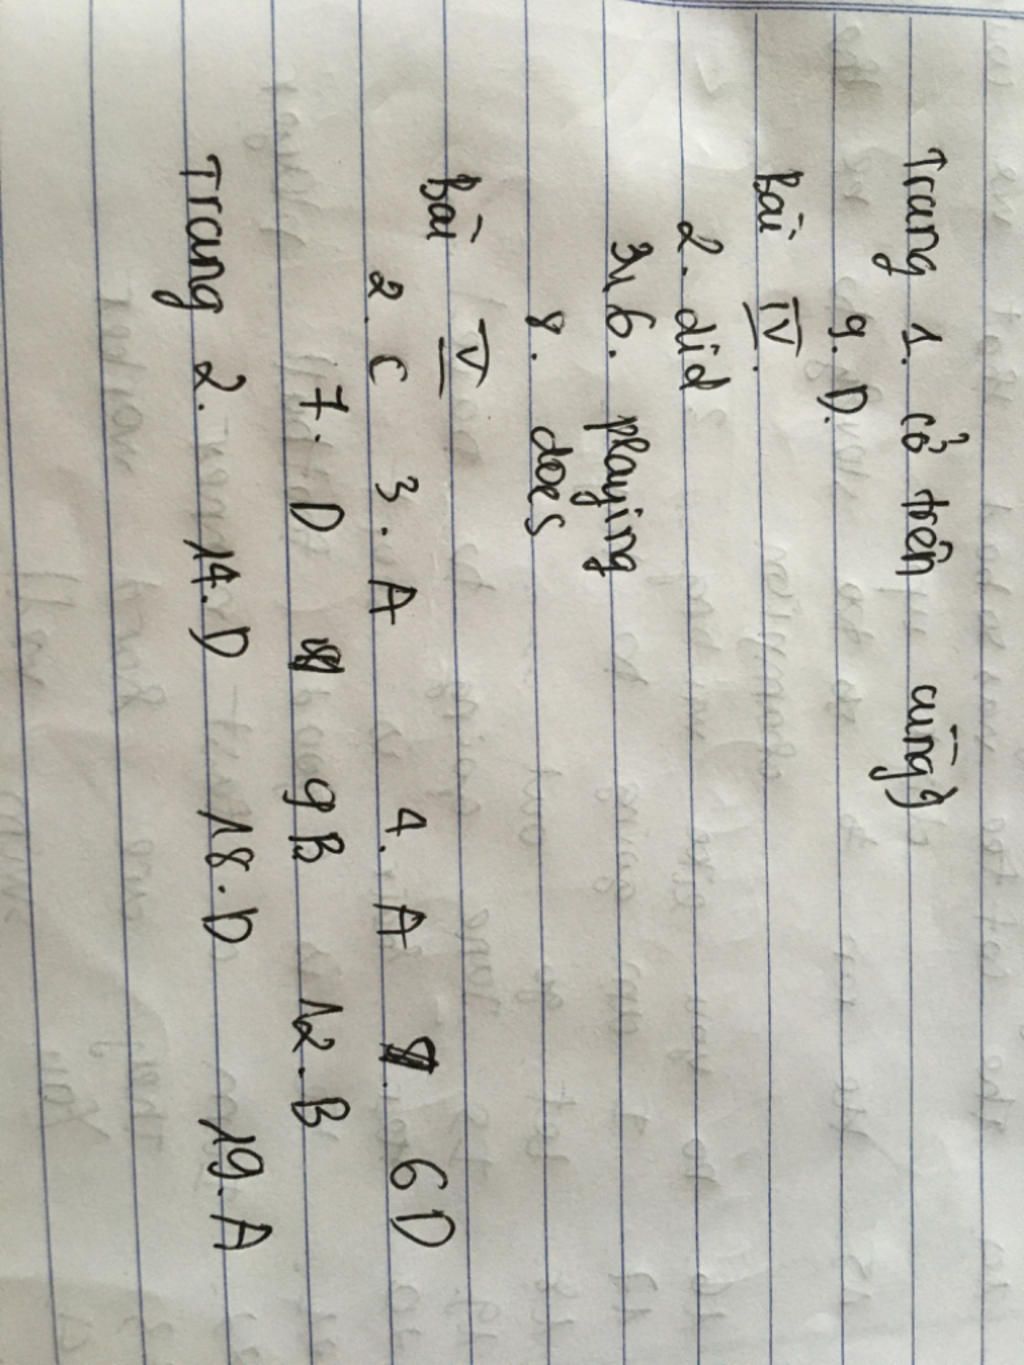 Trang 1. (ở trên cùng)
9. D.
Bài IV.
2. did
6. playing
8. does
Bài V
2. C 3. A 4. A 6D
7. D 9B 12. B
Trang 2. 14. D 18. D 19. A